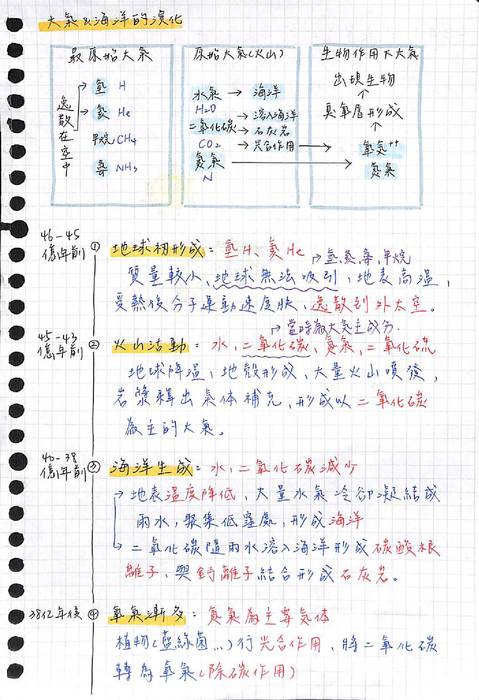 大氣&海洋的演化
最原始大氣
逸散在空中
氫 H
氦 He
甲烷 CH4
氨 NH3
原始大氣(火山)
水氣 → 海洋
H2O
二氧化碳 → 溶入海洋
→ 石灰岩
CO2 → 光合作用 →
氮氣 →
N
生物作用下大氣
出現生物
↑
臭氧層形成
↑
氧氣↑↑
氮氣
46-45
億年前 ① 地球初形成：氫H、氦He
↳氫、氦、氨、甲烷
質量較小、地球無法吸引，地表高溫，
受熱後分子運動速度快，逸散到外太空。
↳當時為大氣主成分.
45-43
億年前 ② 火山活動：水，二氧化碳、氮氣，二氧化硫
地球降溫，地殼形成，大量火山噴發，
岩漿釋出氣體補充，形成以二氧化碳
為主的大氣。
40-38
億年前 ③ 海洋生成：水，二氧化碳減少
→ 地表溫度降低，大量水氣冷卻凝結成
雨水，聚集低窪處，形成海洋
→ 二氧化碳隨雨水溶入海洋形成碳酸根
離子，與鈣離子結合形成石灰岩。
38億年後 ④ 氧氣漸多：氮氣為主要氣体
植物(藍綠菌...)行光合作用，將二氧化碳
轉為氧氣(除碳作用)